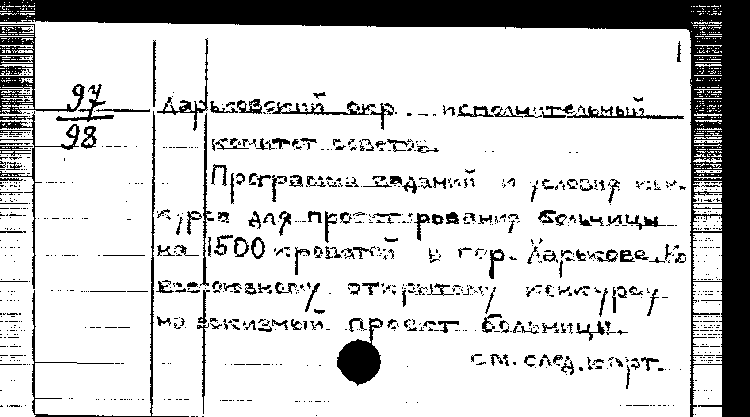 1
97
98
Харьковский окр. исполнительный
комитет советов.
Программа заданий и условия кон-
курса для проектирования больницы
на 1500 кроватей в гор. Харькове. Ко
всесоюзному открытому конкурсу
на эскизный проект больницы.
см. след. карт.